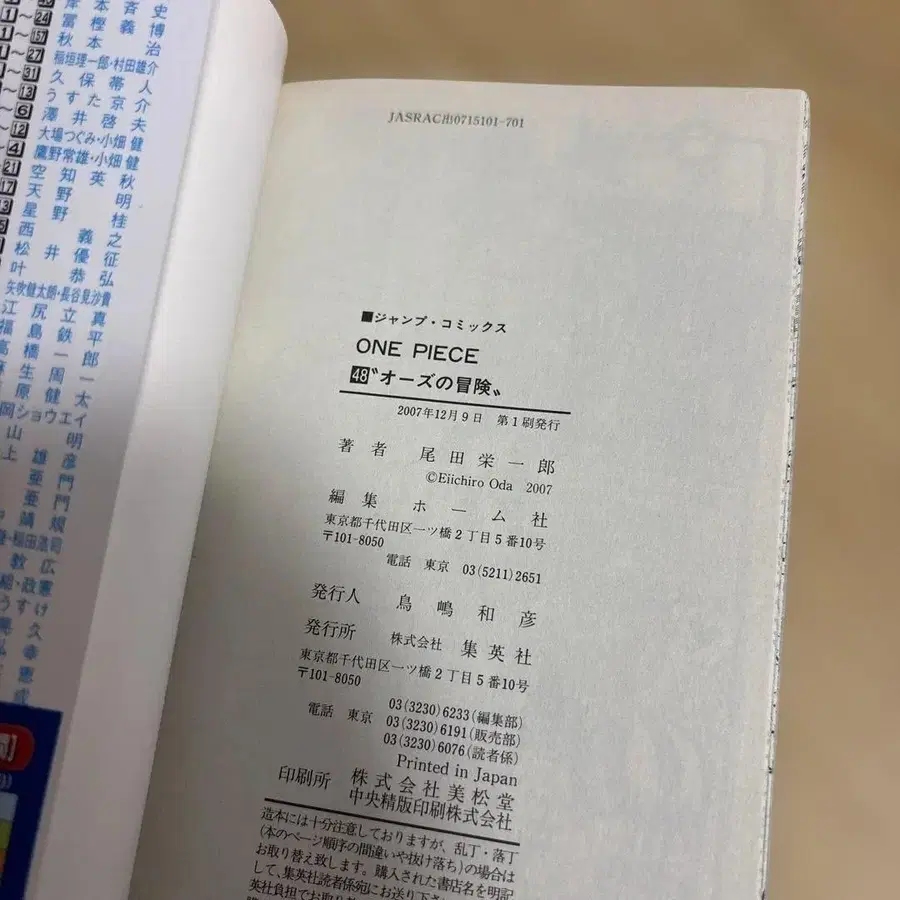 史
岸本斉
冨樫義博
秋本治
稲垣理一郎・村田雄介
久保帯人
うすた京介
澤井啓夫
大場つぐみ・小畑健
鷹野常雄・小畑健
空知英秋
天野明
星野桂
西義之
松井優征
叶恭弘
矢吹健太朗・長谷見沙貴
江尻立真
福島鉄平
高橋一郎
生周一
原健太
岡ショウエイ
山明
上雄彦
亜門
亜門
靖規
稲田浩司
教広
政憲
うすけ
久
幸
恵
成
JASRAC出0715101-701
■ジャンプ・コミックス
ONE PIECE
48〝オーズの冒険〟
2007年12月9日 第1刷発行
著者 尾田栄一郎
©Eiichiro Oda 2007
編集 ホーム社
東京都千代田区一ツ橋2丁目5番10号
〒101-8050
電話 東京 03(5211)2651
発行人 鳥嶋和彦
発行所 株式会社 集英社
東京都千代田区一ツ橋2丁目5番10号
〒101-8050
03(3230)6233(編集部)
電話 東京 03(3230)6191(販売部)
03(3230)6076(読者係)
Printed in Japan
印刷所 株式会社美松堂
中央精版印刷株式会社
造本には十分注意しておりますが、乱丁・落丁
(本のページ順序の間違いや抜け落ち)の場合は
お取り替え致します。購入された書店名を明記
して、集英社読者係宛にお送り下さ
英社負担でお取り